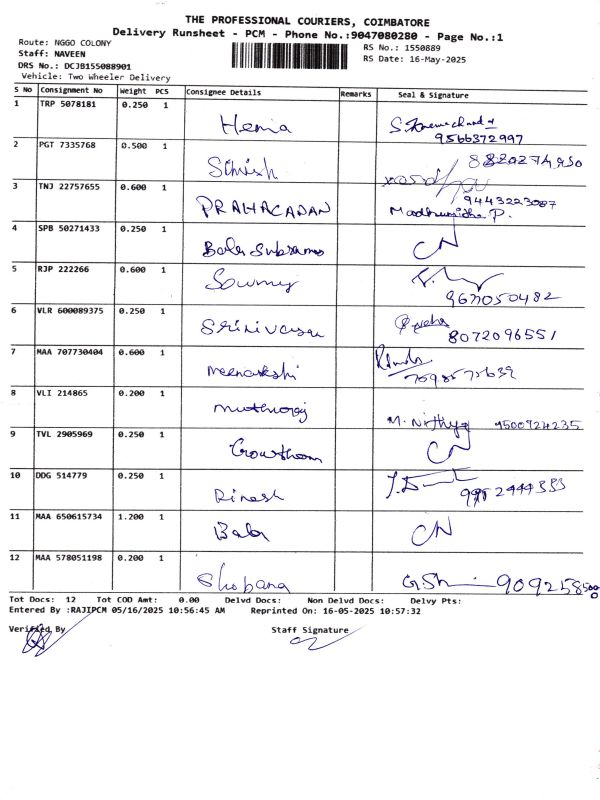 THE PROFESSIONAL COURIERS, COIMBATORE
Delivery Runsheet - PCM - Phone No.:9047080280 - Page No.:1
Route: NGGO COLONY
Staff: NAVEEN
DRS No.: DCJB155088901
Vehicle: Two Wheeler Delivery
RS No.: 1550889
RS Date: 16-May-2025
S No Consignment No Weight PCS Consignee Details Remarks Seal & Signature
1 TRP 5078181 0.250 1 Hema
9566372997
2 PGT 7335768 0.500 1
3 TNJ 22757655 0.600 1
9443223087
Madhumidha P.
4 SPB 50271433 0.250 1 Bala Subramas CN
5 RJP 222266 0.600 1 Soumy
9671050482
6 VLR 600089375 0.250 1 Srinivasan
8072096551
7 MAA 707730404 0.600 1 meenakshi
8 VLI 214865 0.200 1 M. Nithya 9500924235
9 TVL 2905969 0.250 1 Gowtham CN
10 DDG 514779 0.250 1 Dinesh
11 MAA 650615734 1.200 1 Bala CN
12 MAA 578051198 0.200 1 Shobana
Tot Docs: 12 Tot COD Amt: 0.00 Delvd Docs: Non Delvd Docs: Delvy Pts:
Entered By :RAJIPCM 05/16/2025 10:56:45 AM Reprinted On: 16-05-2025 10:57:32
Verified By Staff Signature